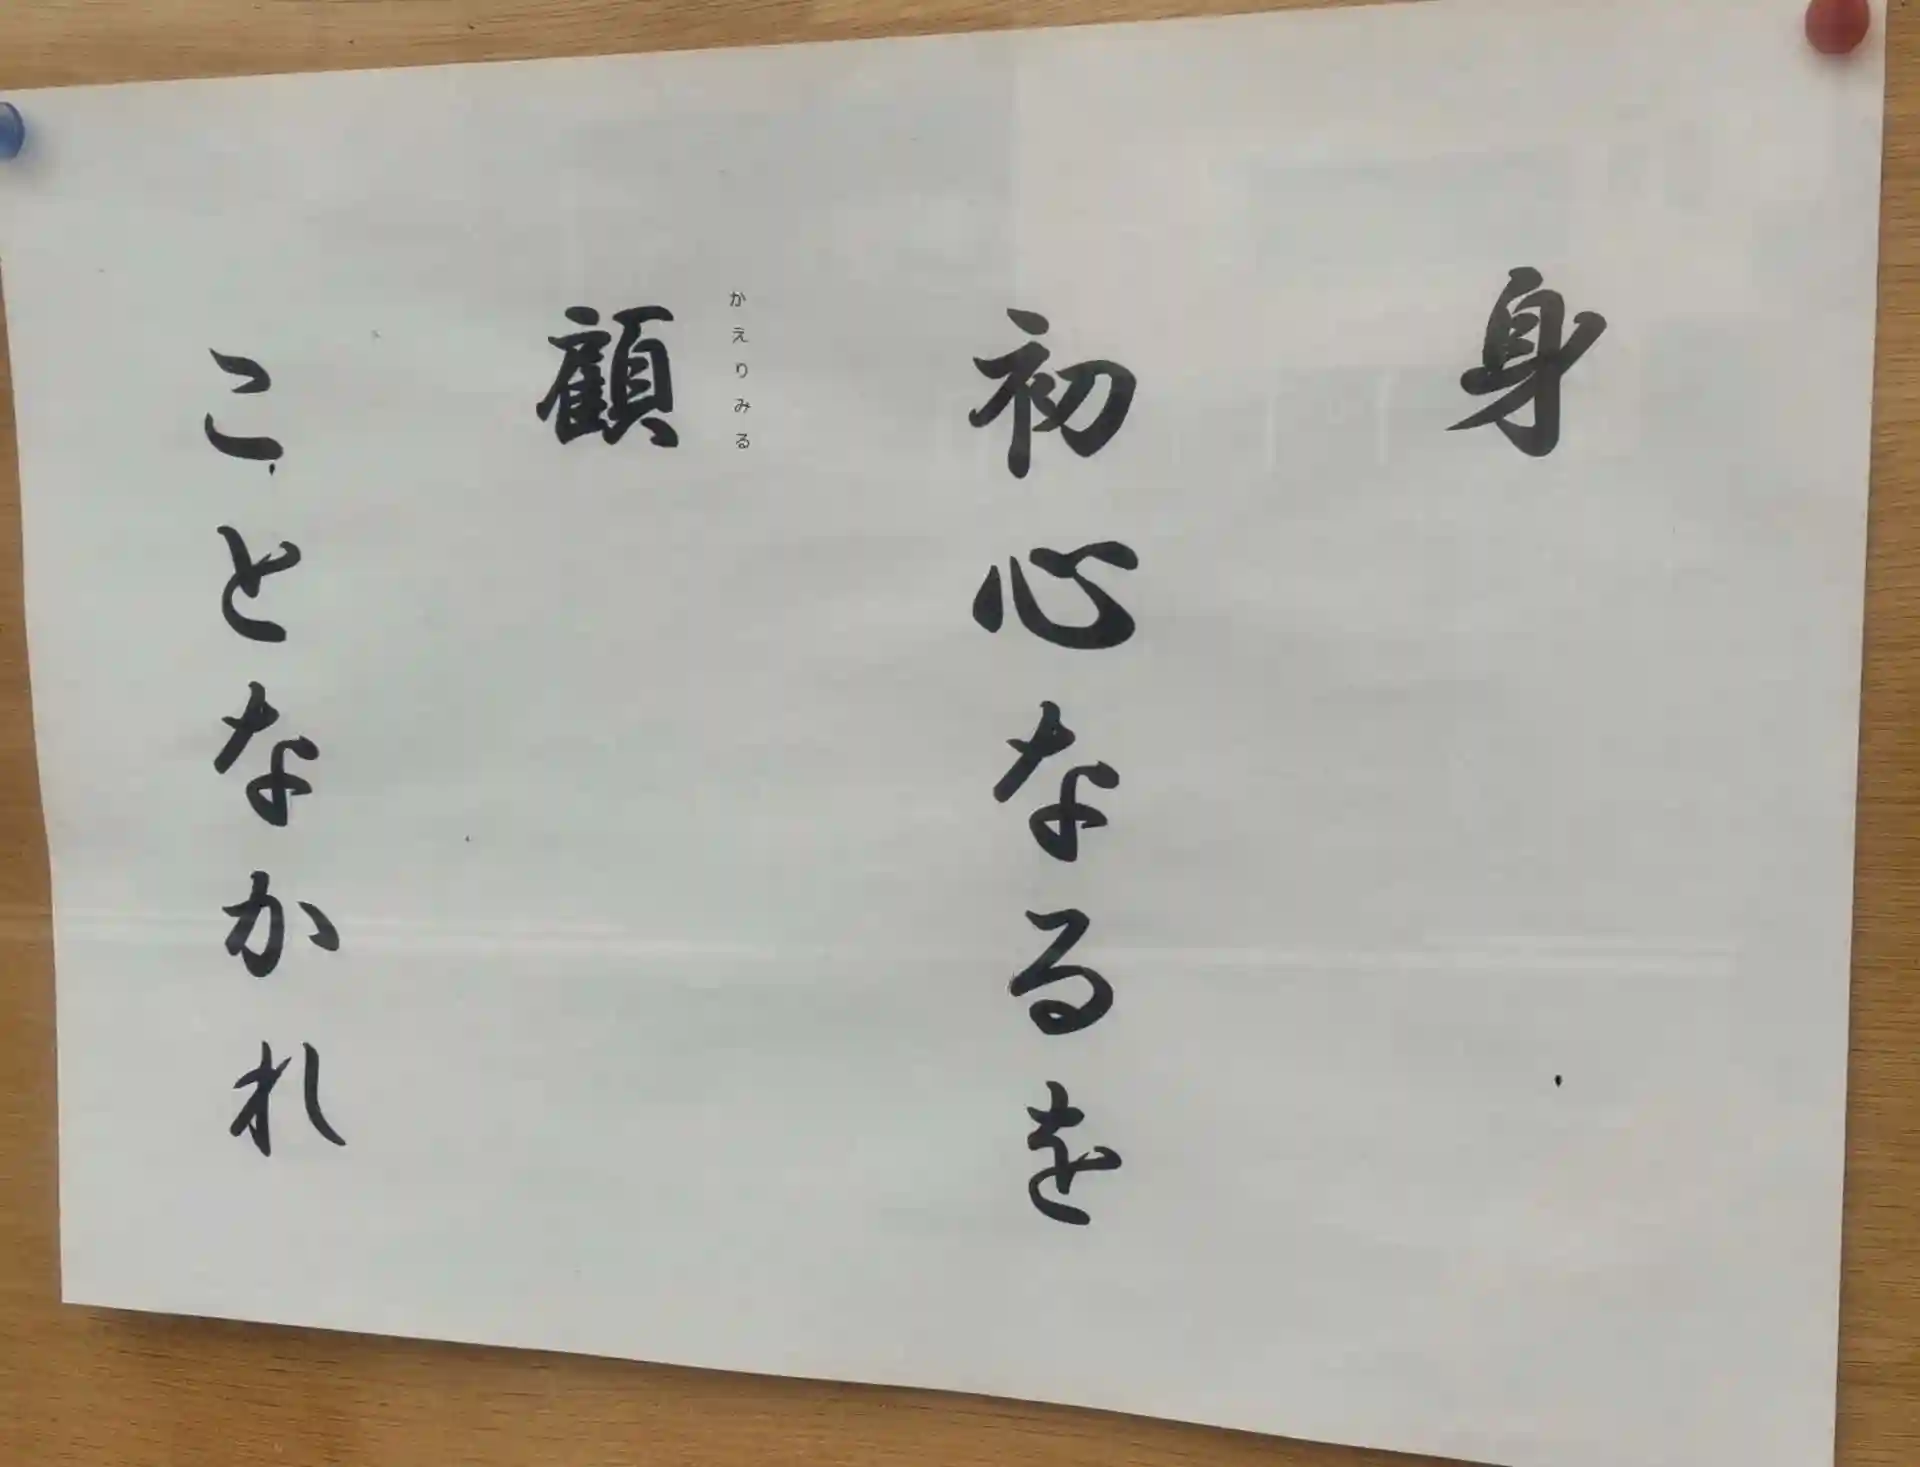 身
初心なるを
かえりみる
顧
ことなかれ